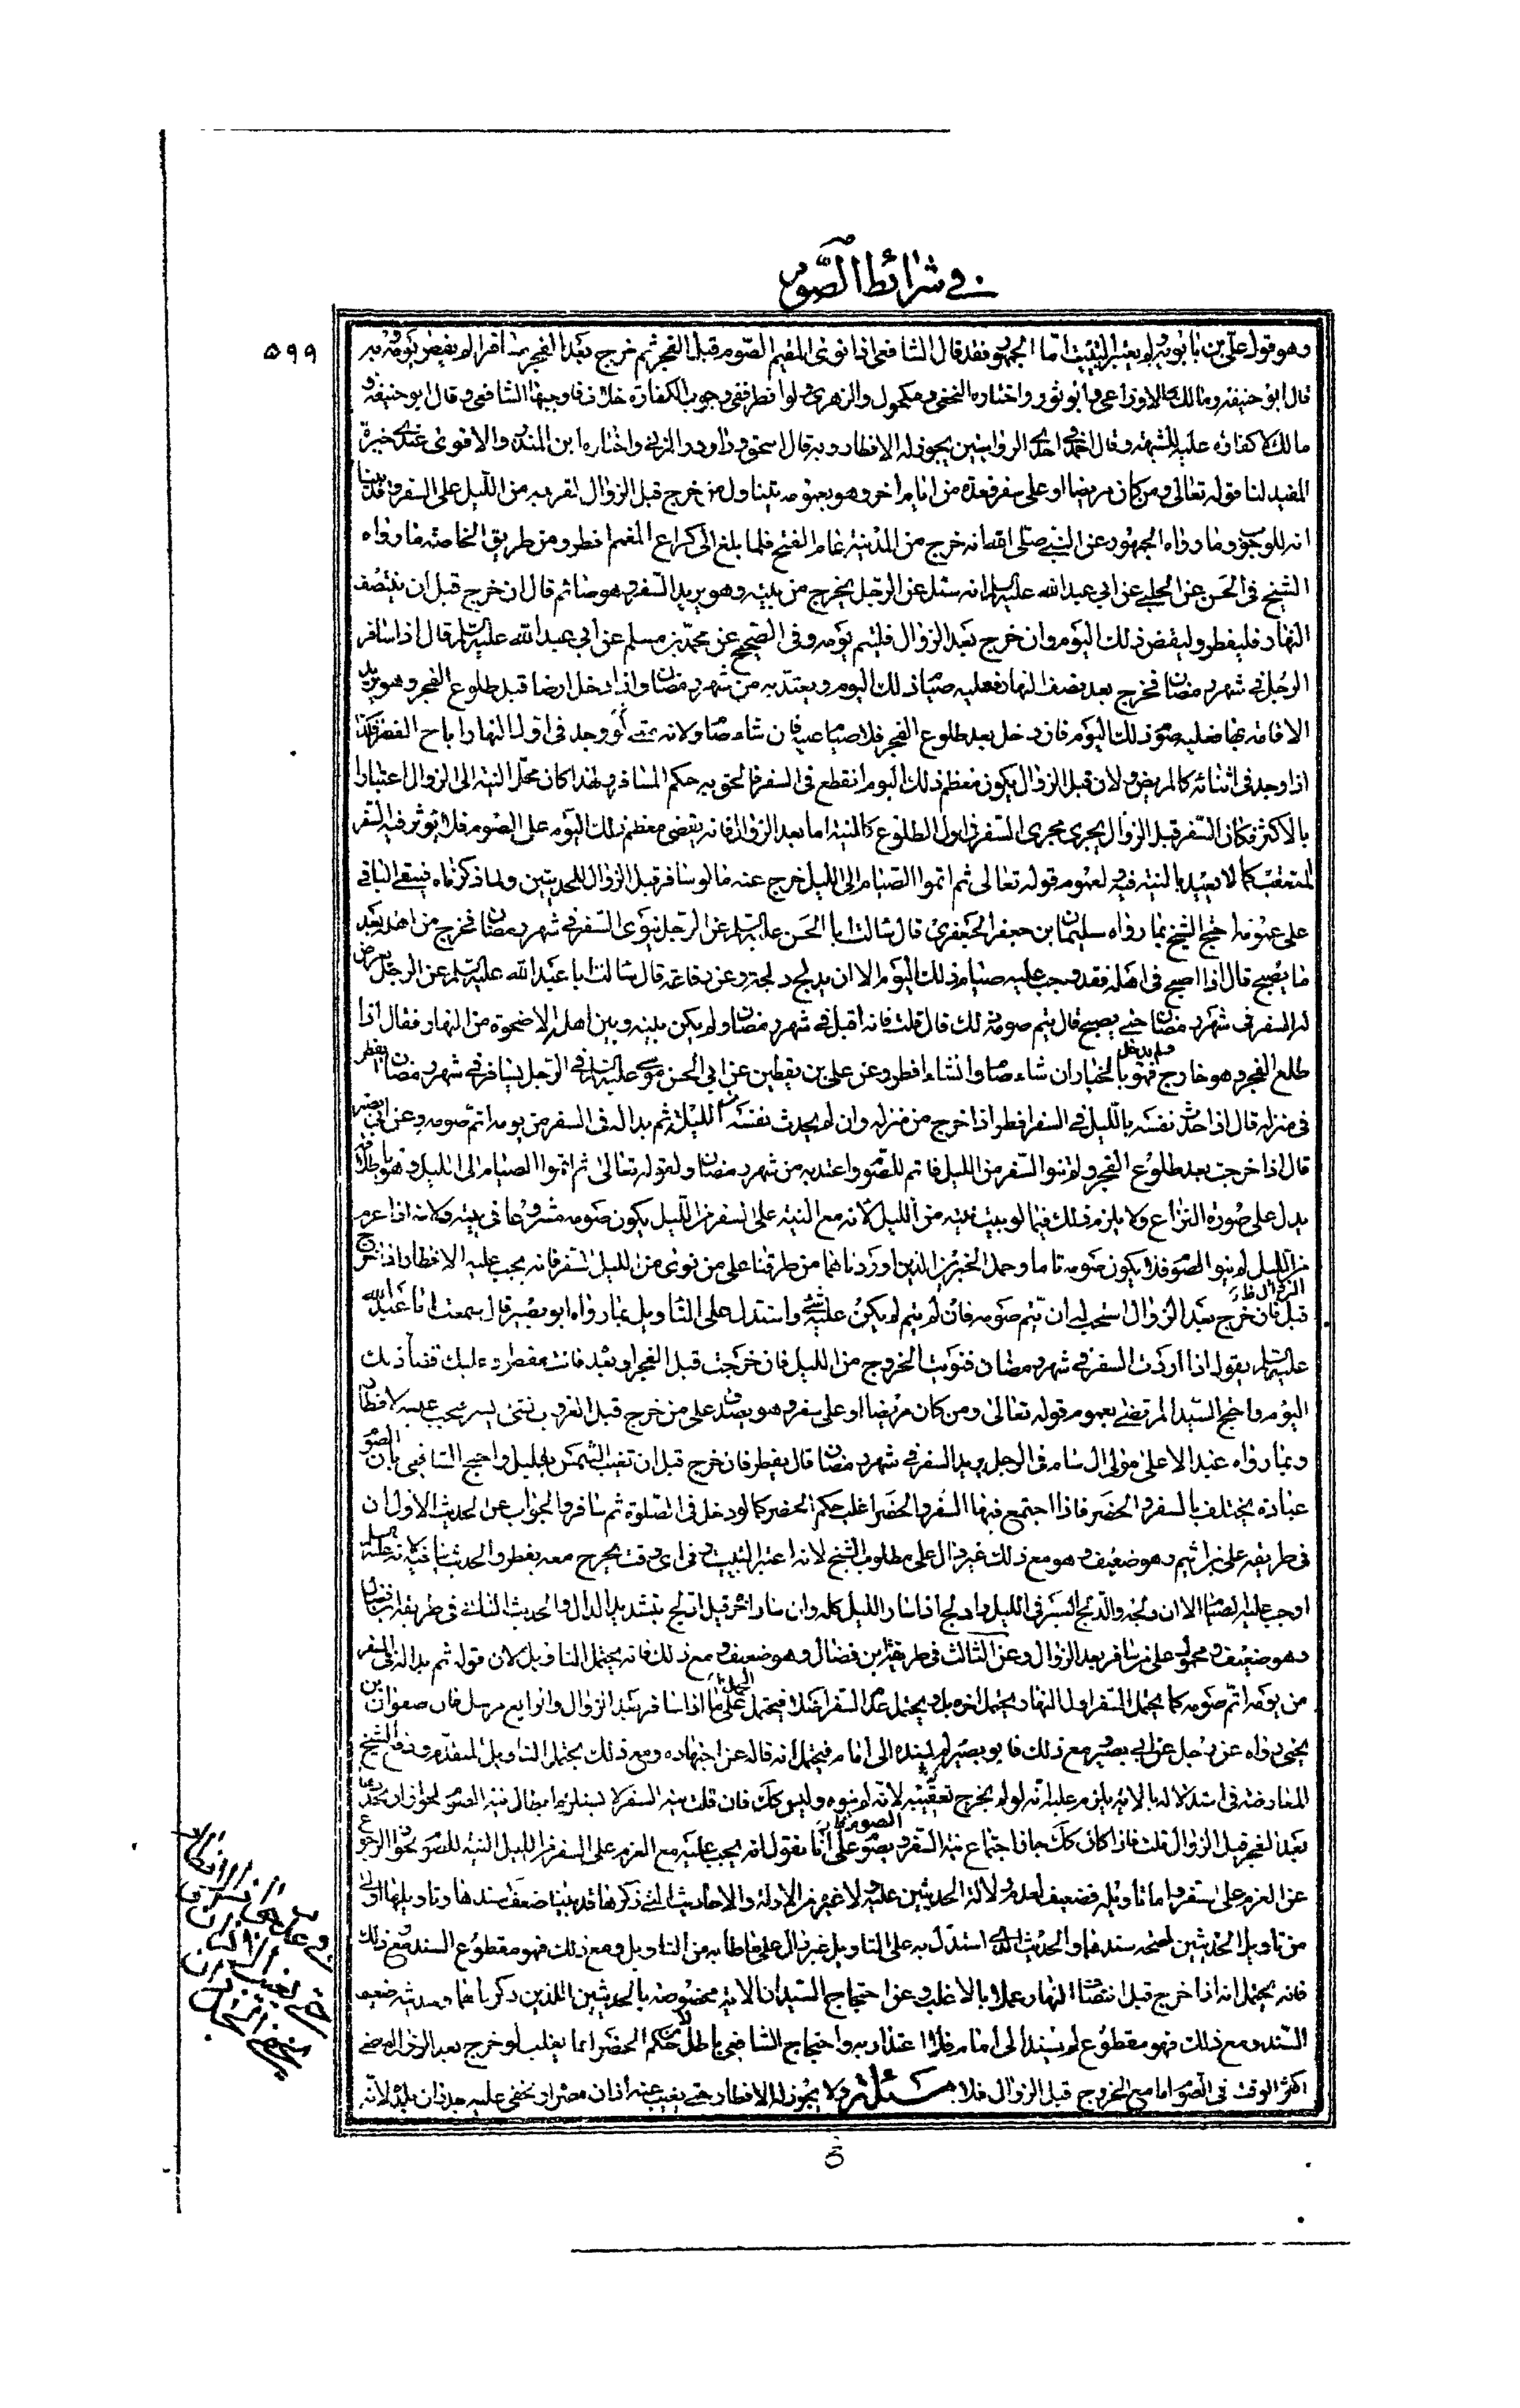 في شرائط الصوم
٥٩٩
وهو قول علي بن بابويه ولم يعتبر التبييت اما الجمهور فقد قال الشافعي اذا نوى المقيم الصوم قبل الفجر ثم خرج بعد الفجر مسافرا لم يفطر يومه وبه
قال ابو حنيفة ومالك والاوزاعي وابو ثور واختاره النخعي ومكحول والزهري ولو افطر ففي وجوب الكفارة خلاف فاوجبها الشافعي وقال ابو حنيفة و
مالك لا كفارة عليه للشبهة وقال احمد في احدى الروايتين يجوز له الافطار وبه قال اسحق وداود والمزني واختاره ابن المنذر والاقوى عندي خيرة
المفيد لنا قوله تعالى ومن كان مريضا او على سفر فعدة من ايام اخر وهو بعمومه يتناول من خرج قبل الزوال لقربه من الليل على السفر وقد بينا
انه للوجوب وما رواه الجمهور عن النبي صلى الله انه خرج من المدينة عام الفتح فلما بلغ الى كراع الغميم افطر ومن طريق الخاصة ما رواه
الشيخ في الحسن عن الحلبي عن ابي عبد الله عليه السلم انه سئل عن الرجل يخرج من بيته وهو يريد السفر وهو صائم قال ان خرج قبل ان ينتصف
النهار فليفطر وليقض ذلك اليوم وان خرج بعد الزوال فليتم يومه وفي الصحيح عن محمد بن مسلم عن ابي عبد الله عليه السلم قال اذا سافر
الرجل في شهر رمضان فخرج بعد نصف النهار فعليه صيام ذلك اليوم ويعتد به من شهر رمضان واذا دخل ارضا قبل طلوع الفجر وهو يريد
الاقامة بها فعليه صوم ذلك اليوم فان دخل بعد طلوع الفجر فلا صيام عليه فان شاء صام ولانه معنى لو وجد في اول النهار اباح الفطر فكذا
اذا وجد في اثنائه كالمريض ولان قبل الزوال يكون معظم ذلك اليوم انقطع في السفر فالحق به حكم المسافر ولهذا كان محل النية الى الزوال اعتبارا
بالاكثر فكان السفر قبل الزوال يجري مجرى السفر في اول الطلوع كالنية اما بعد الزوال فانه يقضى معظم ذلك اليوم على الصوم فلا يؤثر فيه السفر
المتعقب كما لا يعتد بالنية فيه ولعموم قوله تعالى ثم اتموا الصيام الى الليل خرج عنه ما لو سافر قبل الزوال للحديثين ولما ذكرناه فيبقى الباقي
على عمومه احتج الشيخ بما رواه سليمان بن جعفر الجعفري قال سالت ابا الحسن عليه السلم عن الرجل ينوي السفر في شهر رمضان فخرج من اهله بعد
ما يصبح قال اذا اصبح في اهله فقد وجب عليه صيام ذلك اليوم الا ان يدلج دلجة وعن رفاعة قال سالت ابا عبد الله عليه السلم عن الرجل يعرض
له السفر في شهر رمضان حتى يصبح قال يتم صومه ذلك قال قلت فانه اقبل في شهر رمضان ولم يكن بينه وبين اهله الا ضحوة من النهار فقال اذا
طلع الفجر وهو خارج ولم يدخل فهو بالخيار ان شاء صام وان شاء افطر وعن علي بن يقطين عن ابي الحسن موسى عليه السلم في الرجل يسافر في شهر رمضان ايفطر
في منزله قال اذا حدث نفسه بالليل في السفر افطر اذا خرج من منزله وان لم يحدث نفسه من الليلة ثم بدا له في السفر من يومه اتم صومه وعن ابي بصير
قال اذا خرجت بعد طلوع الفجر ولم تنو السفر من الليل فاتم الصوم واعتد به من شهر رمضان ولقوله تعالى ثم اتموا الصيام الى الليل وهو باطلاقه
يدل على صورة النزاع ولا يلزم ذلك فيما لو بيت نيته من الليل لانه مع النية على السفر من الليل يكون صومه مشروعا في بيته ولانه اذا عزم
من الليل لم ينو الصوم فلا يكون صومه تاما وحمل الخبرين الذين اوردناهما من طرقنا على من نوى من الليل السفر فانه يجب عليه الافطار اذا خرج
قبل الزوال فان خرج بعد الزوال استحب له ان يتم صومه فان لم يتم لم يكن عليه شئ واستدل على التاويل بما رواه ابو بصير قال سمعت ابا عبد الله
عليه السلم يقول اذا اردت السفر في شهر رمضان فنويت الخروج من الليل فان خرجت قبل الفجر او بعده فانت مفطر وعليك قضاء ذلك
اليوم واحتج السيد المرتضى بعموم قوله تعالى ومن كان مريضا او على سفر وهو يصدق على من خرج قبل الغروب فيجب عليه الافطار
وبما رواه عبد الاعلى مولى ال سام في الرجل يريد السفر في شهر رمضان قال يفطر فان خرج قبل ان تغيب الشمس بقليل واحتج الشافعي بان الصوم
عبادة يختلف بالسفر والحضر فاذا اجتمع فيها السفر والحضر غلب حكم الحضر كما لو دخل في الصلوة ثم سافر والجواب عن الحديث الاول ان
في طريقه وهو ضعيف وهو مع ذلك غير دال على مطلوب الشيخ لانه اعتبر التبييت وفي اي وقت يخرج معه يفطر والحديث ينافيه لانه عليه السلم
اوجب عليه الصيام الا ان يدلج والدلج السير في الليل وادلج اذا سار الليل كله وان سار اخر قيل ادلج بتشديد الدال والحديث الثاني في طريقه ابن فضال
وهو ضعيف ومحمول على من سافر بعد الزوال وعن الثالث في طريقه ابن فضال وهو ضعيف ومع ذلك فانه يحتمل التاويل لان قوله ثم بدا له في السفر
من يومه اتم صومه كما يحتمل السفر اول النهار يحتمل اخره بل ويحتمل عدم السفر اصلا فيحتمل الحمل على ما اذا سافر بعد الزوال والرابع مرسل فان صفوان بن
يحيى رواه عن رجل عن ابي بصير ومع ذلك فابو بصير لم يسنده الى امام فيحتمل انه قاله عن اجتهاده ومع ذلك يحتمل التاويل المتقدم
بعد الفجر قبل الزوال قلت فاذا كان كك جاز اجتماع نية السفر ونية الصوم على انا نقول انه يجب عليه مع العزم على السفر من الليل النية للصوم لجواز الرجوع
عن العزم على السفر واما تاويله فضعيف لعدم دلالة الحديثين عليه ولا غيره من الادلة والاحاديث التي ذكرها قد بينا ضعف سندها وتاويلها اولى
من تاويل الحديثين لصحة سندهما والحديث الذي استدل به على التاويل غير دال على ما طالبه من التاويل ومع ذلك فهو مقطوع السند ومع ذلك
فانه يحتمل انه اذا خرج قبل انتصاف النهار عملا بالاغلب وعن احتجاج السيد ان الاية مخصوصة بالحديثين اللذين ذكرناهما وحديثه ضعيف
السند ومع ذلك فهو مقطوع لم يسند الى امام فلا اعتداد به واحتجاج الشافعي باطل لان حكم الحضر انما يغلب لو خرج بعد الزوال لمضي
اكثر الوقت في الصوم اما مع الخروج قبل الزوال فلا مسئلة ولا يجوز له الافطار حتى يغيب عنه اذان مصره او يخفى عليه جدران بلده لانه